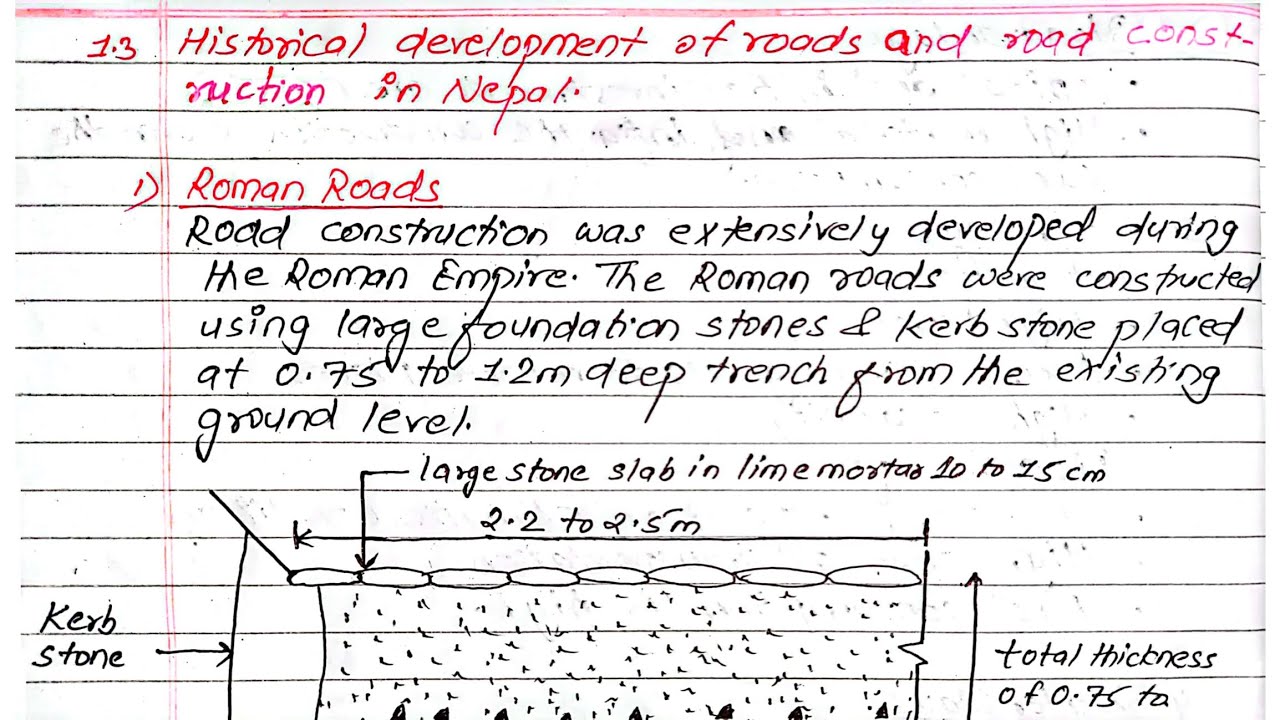 1.3 Historical development of roads and road const-
ruction in Nepal.
1) Roman Roads
Road construction was extensively developed during
the Roman Empire. The Roman roads were constructed
using large foundation stones & Kerb stone placed
at 0.75 to 1.2m deep trench from the existing
ground level.
large stone slab in lime mortar 10 to 15 cm
2.2 to 2.5m
Kerb
stone
total thickness
of 0.75 to